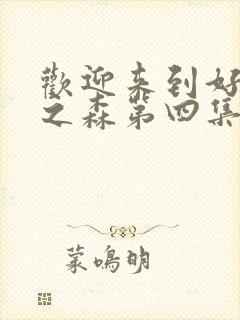 歡迎来到好
之森第四集
蒙鳴明